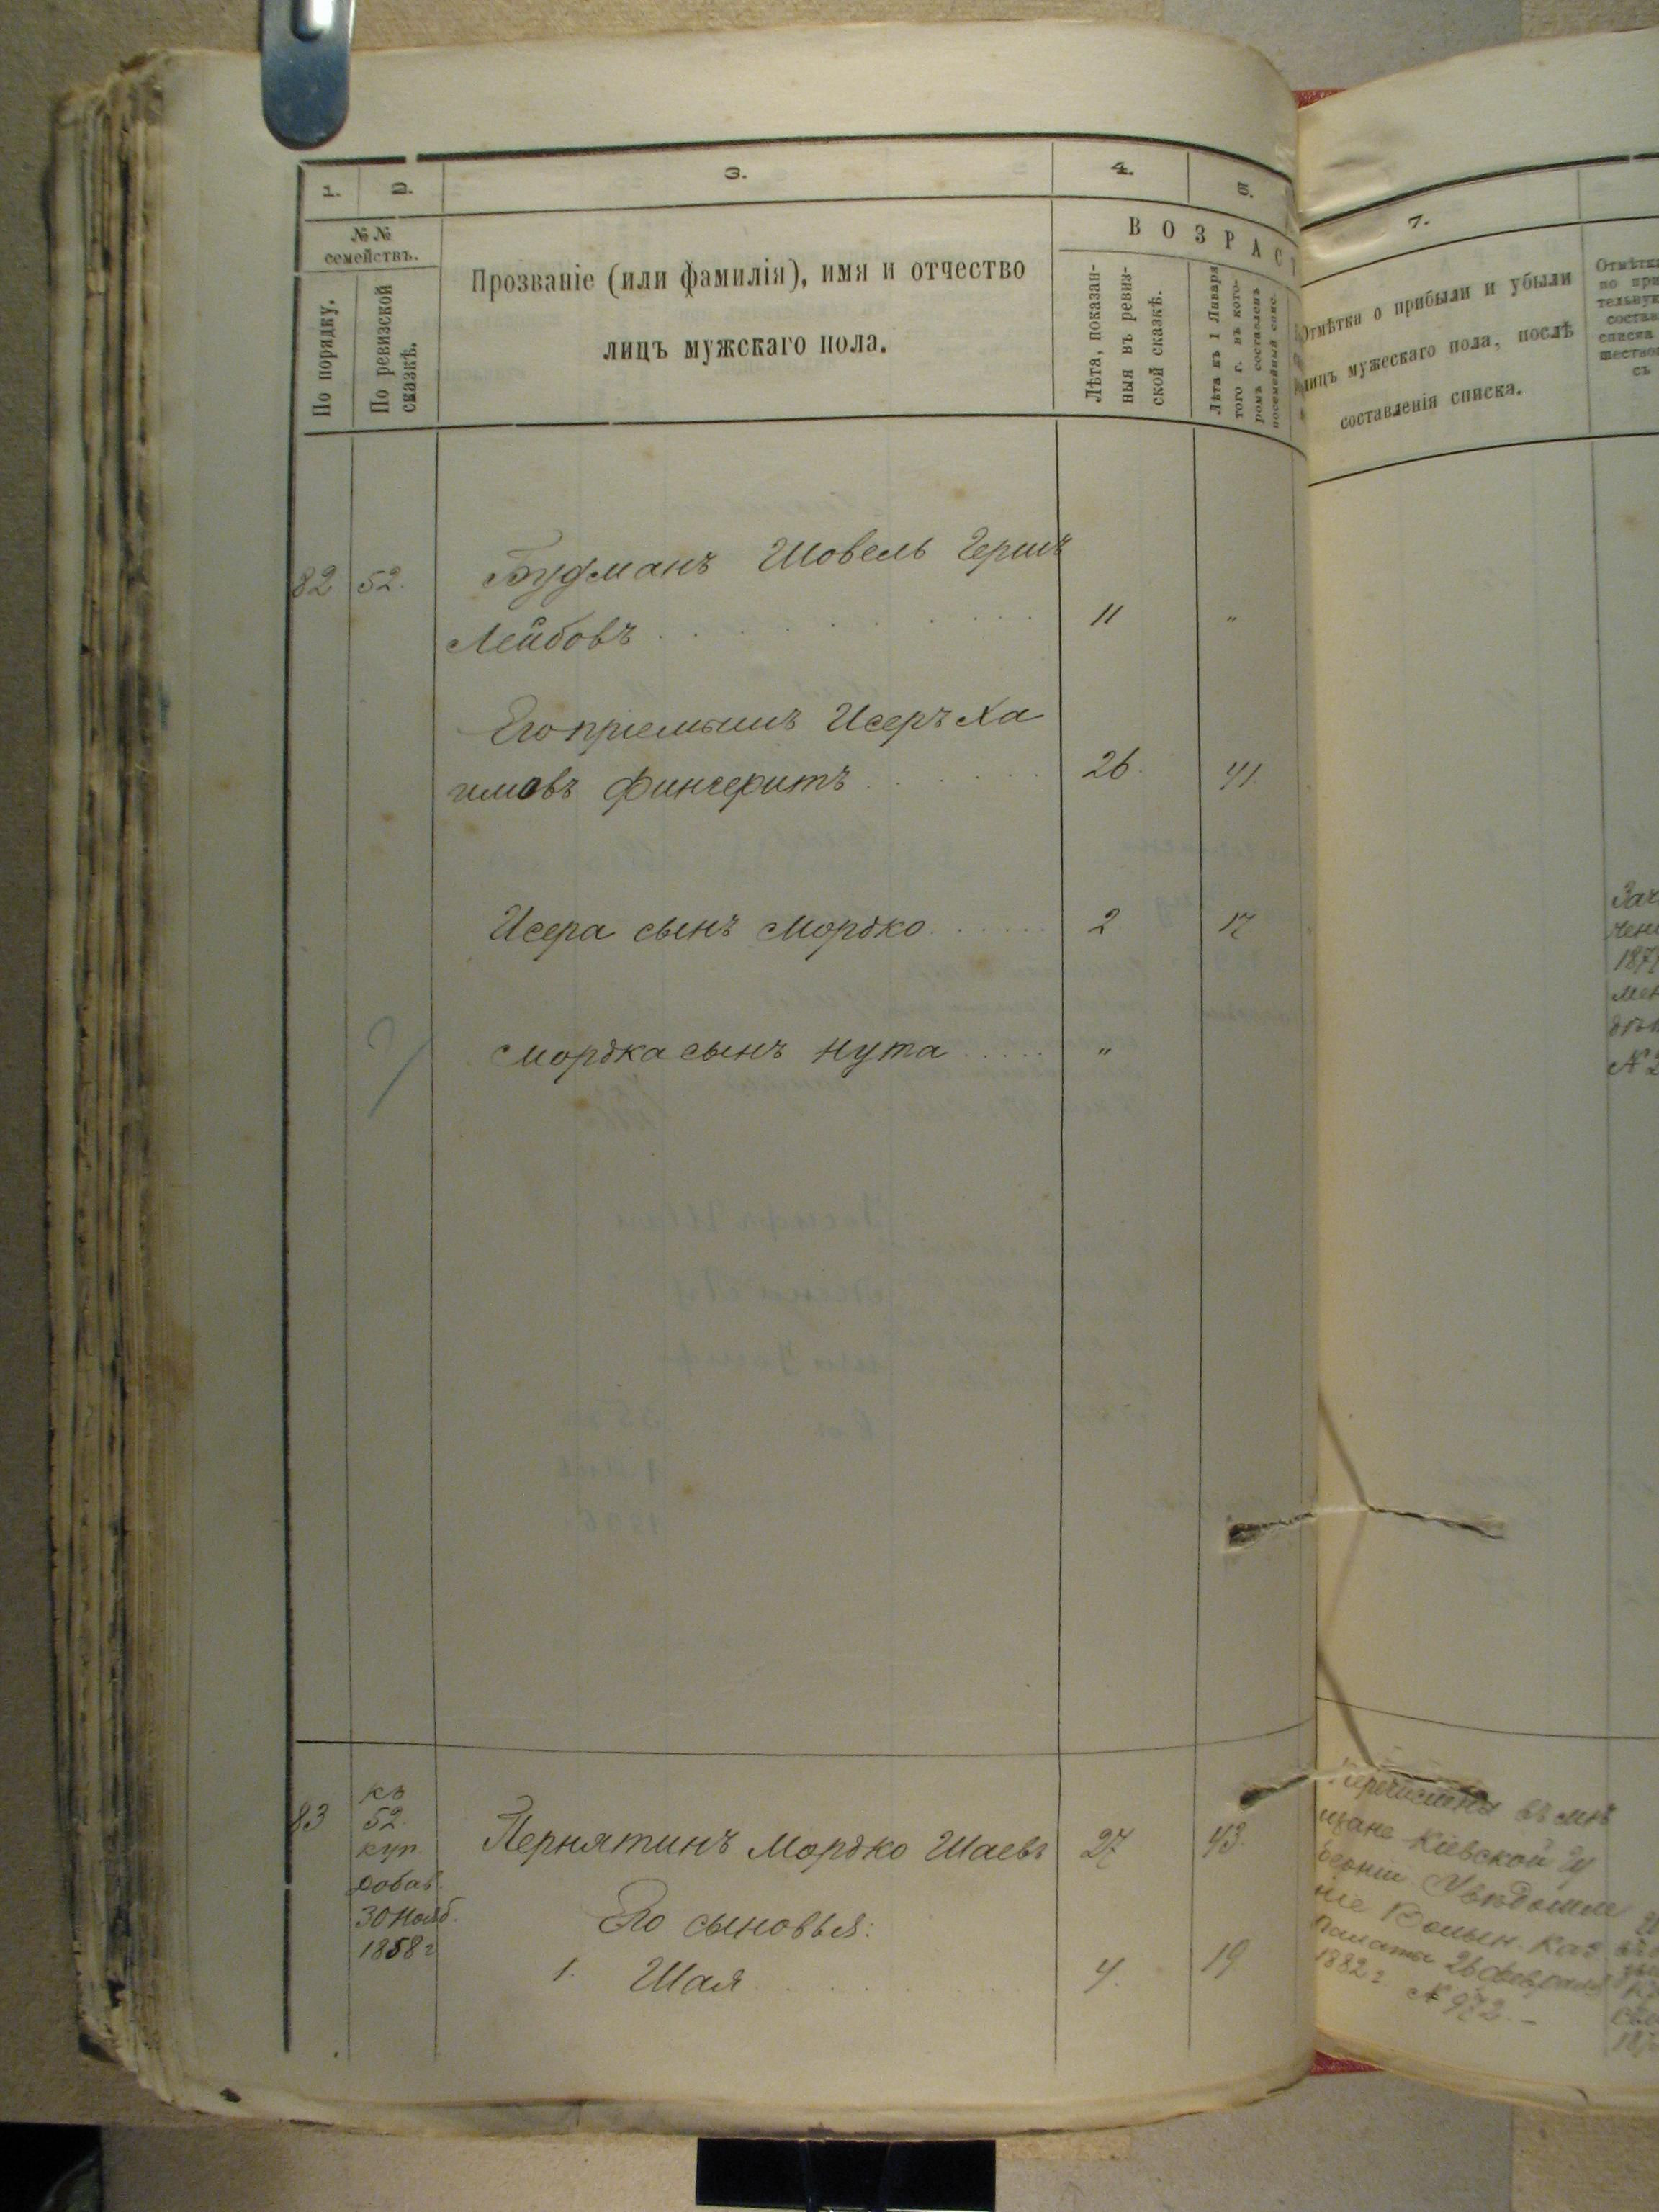 1.
2.
3.
4.
6.
№ №
семействъ.
По порядку.
По ревизской
сказкѣ.
Прозваніе (или фамилія), имя и отчество
лицъ мужскаго пола.
ВОЗРАСТ
Лѣта, показан-
ныя въ ревиз-
ской сказкѣ.
Лѣта къ 1 Января
того г. въ кото-
ромъ составленъ
посемейный спис.
82 52. Будманъ Шовель Герш
Лейбовъ 11 "
Его пріемышъ Исеръ Ха
имовъ Фингеритъ 26. 41.
Исера сынъ Мордко 2 17
Мордка сынъ Нута "
83
къ
52.
куп.
добав.
30 Нояб.
1858 г
Пернятинъ Мордко Шаевъ 27 43.
Его сыновья:
1. Шая 4. 19
7.
Отмѣтка о прибыли и убыли
лицъ мужескаго пола, послѣ
составленія списка.
Перечислены въ мѣ
щане Кіевской Гу
берніи Увѣдомле
ніе Волын. Каз.
Палаты 26 февраля
1882 г
№ 972.–